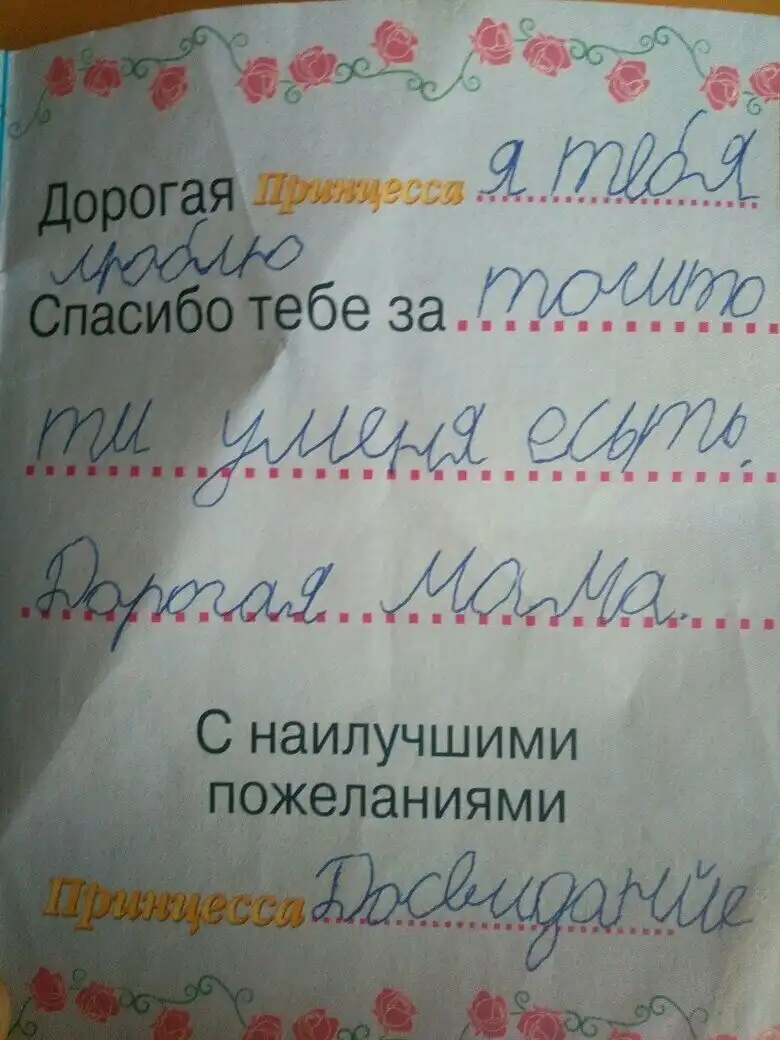 Дорогая Принцесса я тебя
люблю
Спасибо тебе за тошто
ти уменя есыть.
Дорогая Мама.
С наилучшими
пожеланиями
Принцесса Досвиданйие